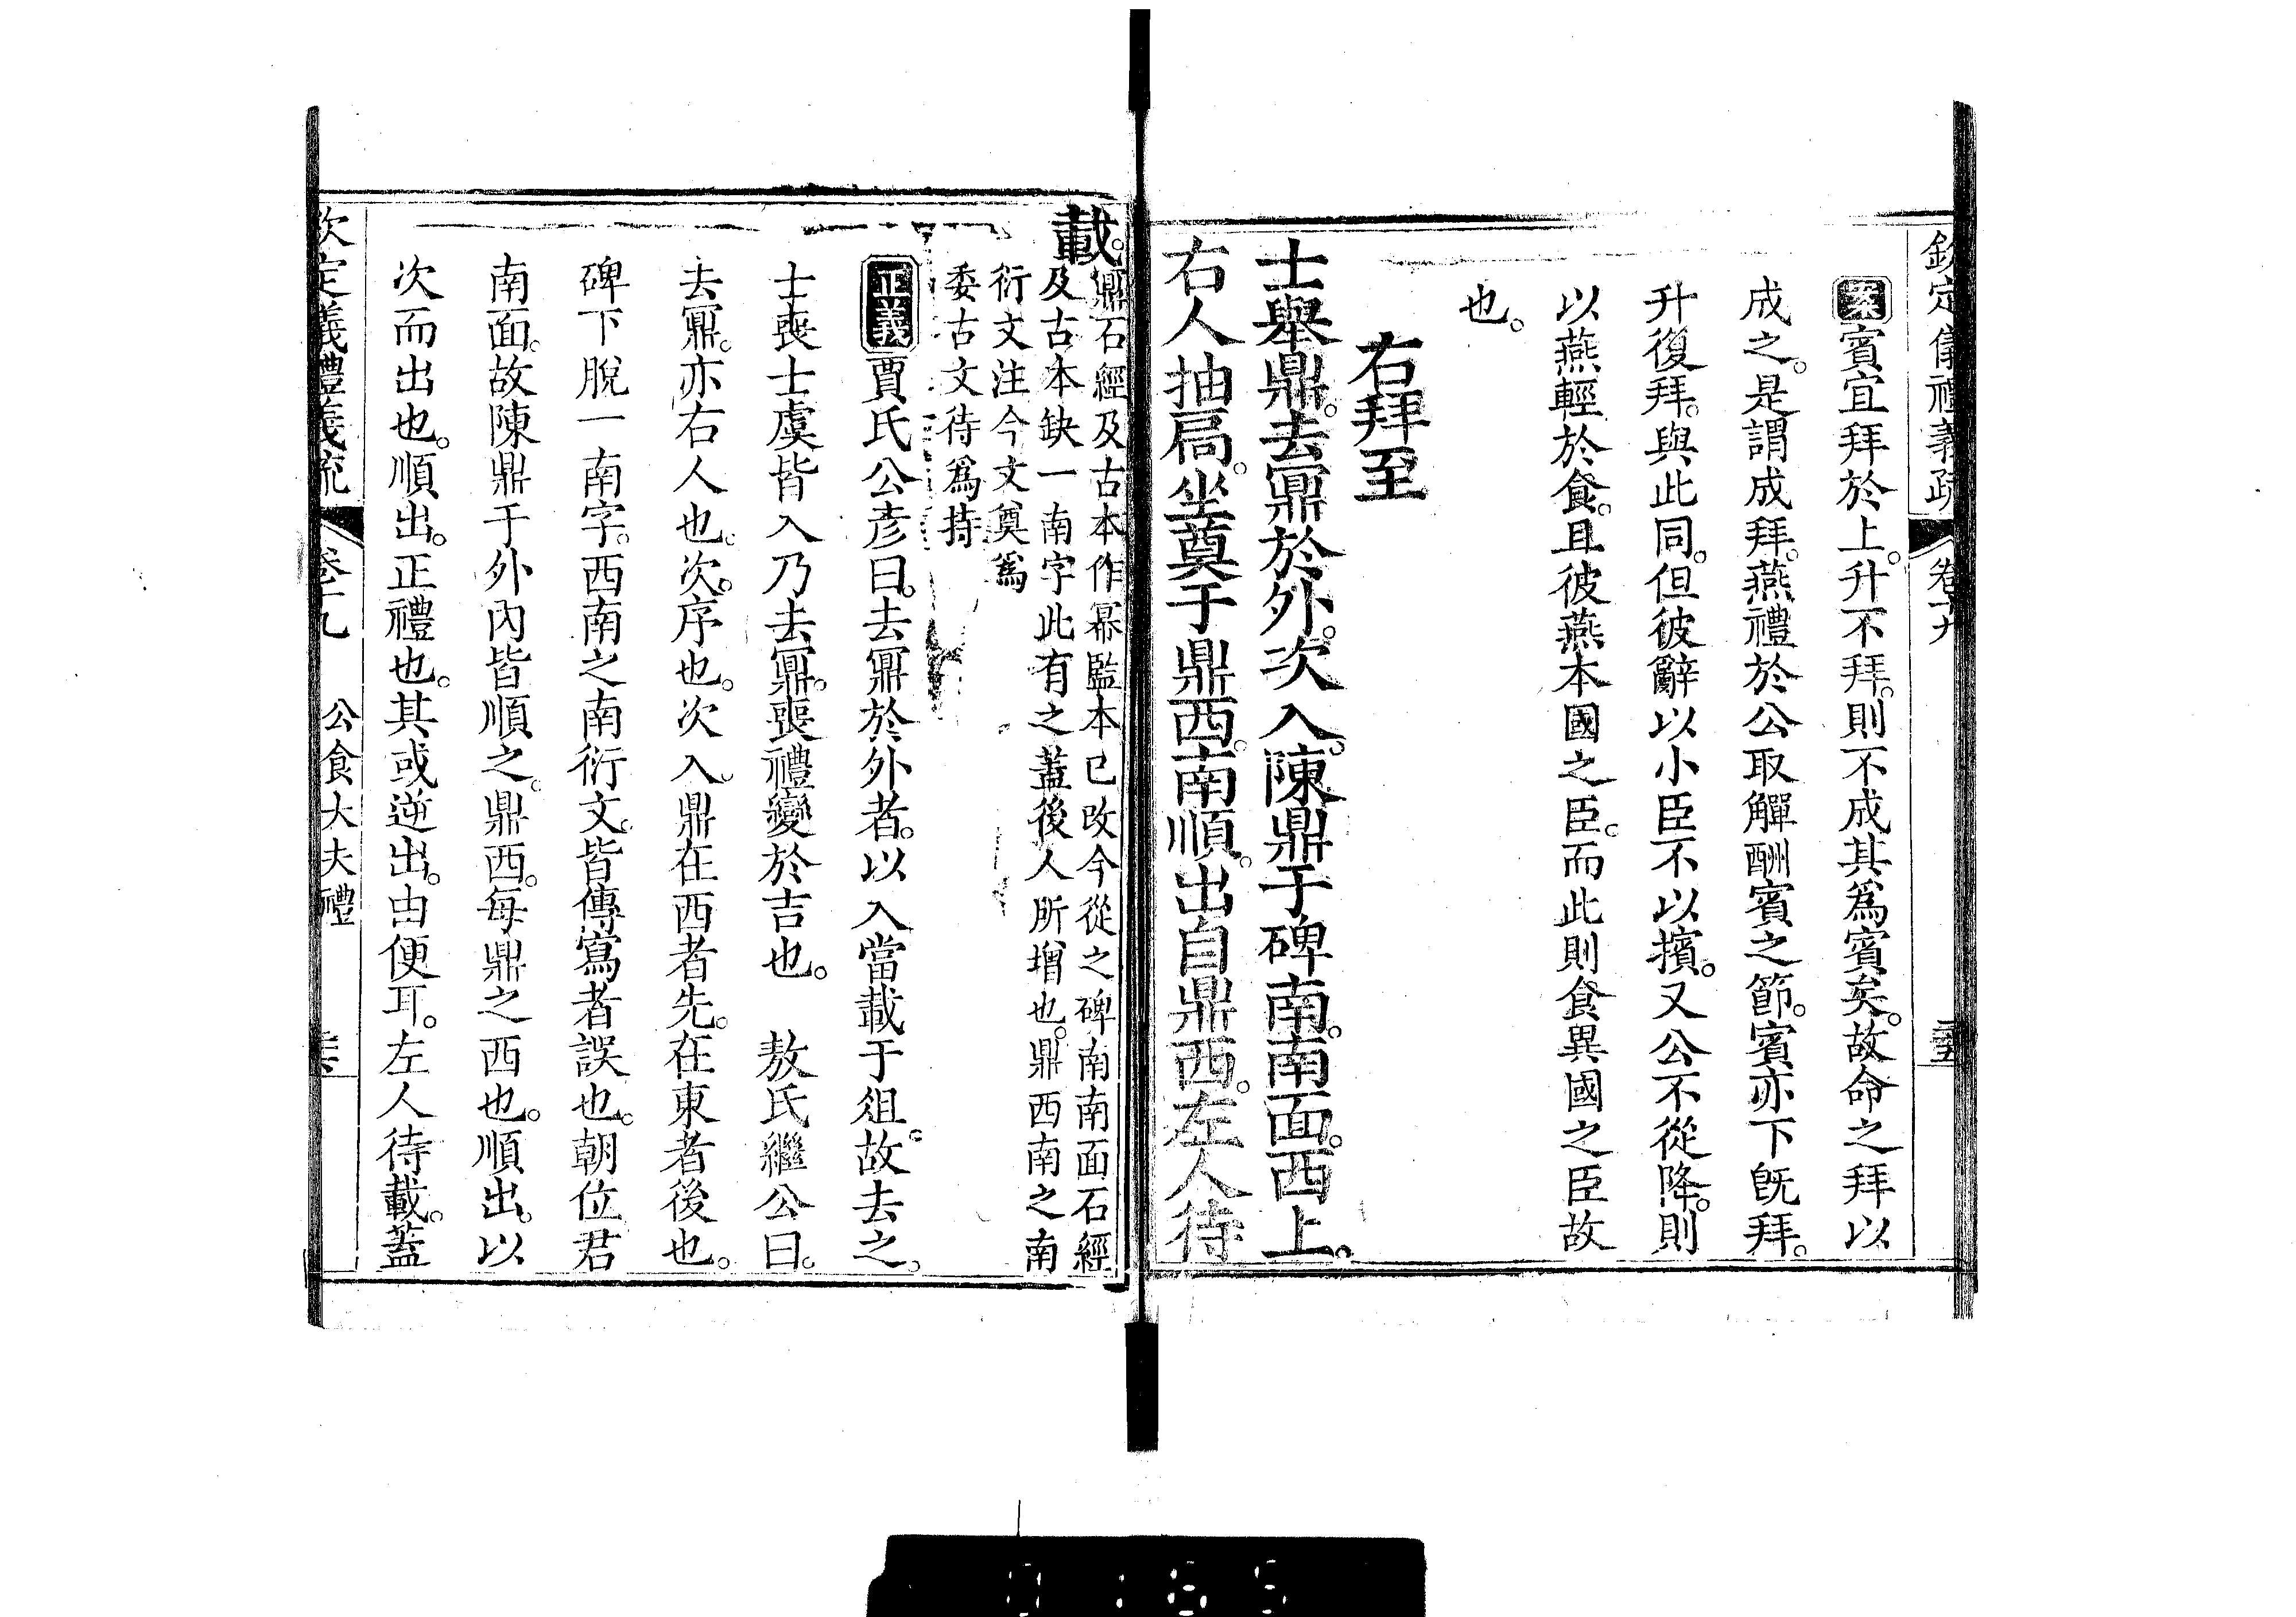 欽定儀禮義疏 卷十九 三五
案賓宜拜於上。升不拜。則不成其爲賓矣。故命之拜以
成之。是謂成拜。燕禮於公取觶酬賓之節。賓亦下旣拜。
升復拜。與此同。但彼辭以小臣不以擯。又公不從降。則
以燕輕於食。且彼燕本國之臣。而此則食異國之臣故
也。
右拜至
士舉鼎。去鼏於外。次入。陳鼎于碑南。南面。西上。
右人抽扃。坐奠于鼎西。南順。出自鼎西。左人待
載。鼏石經及古本作冪監本已改今從之碑南南面石經
及古本缺一南字此有之蓋後人所增也。鼎西南之南
衍文注今文奠爲
委古文待爲持
正義賈氏公彥曰。去鼏於外者。以入當載于俎。故去之。
士喪士虞皆入乃去鼏。喪禮變於吉也。 敖氏繼公曰。
去鼏。亦右人也。次。序也。次入。鼎在西者先。在東者後也。
碑下脫一南字。西南之南衍文。皆傳寫者誤也。朝位君
南面。故陳鼎于外內皆順之。鼎西。每鼎之西也。順出。以
次而出也。順出。正禮也。其或逆出。由便耳。左人待載。蓋
欽定義禮義疏 卷十九 公食大夫禮